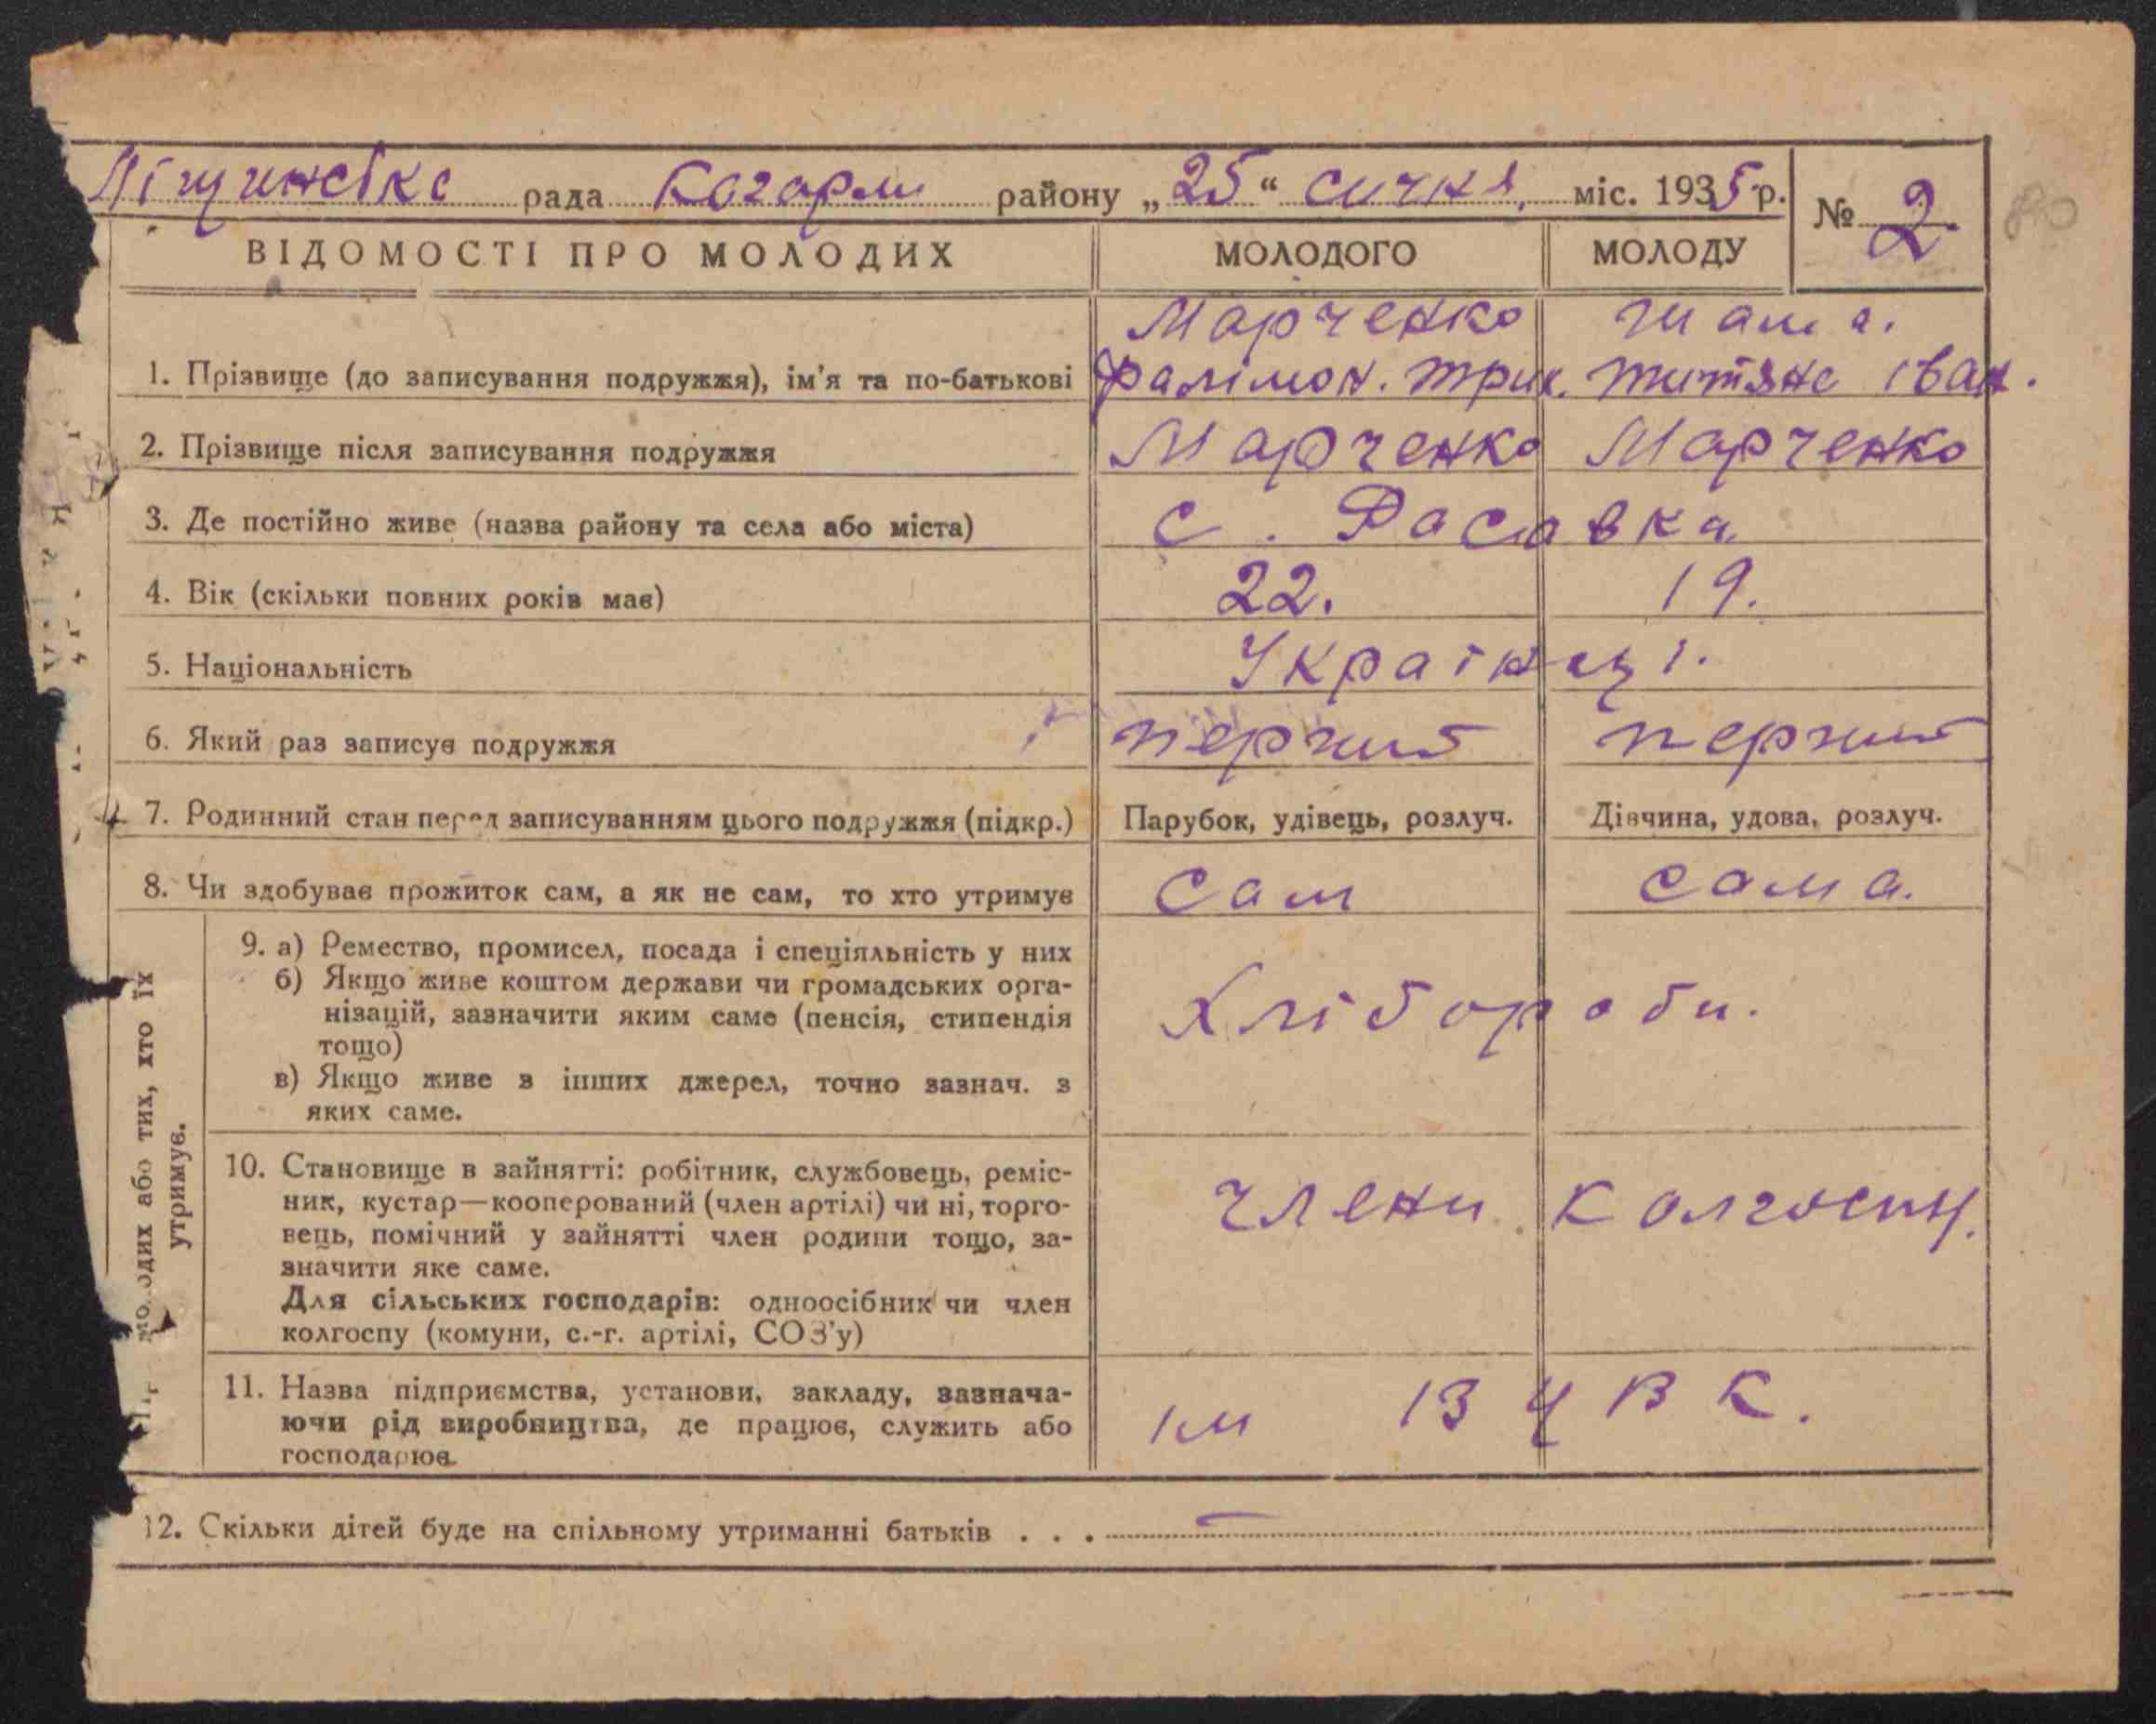 Ліщинсівка рада Кагарли району „25“ сичня, міс. 1935 р.
№ 2
ВІДОМОСТІ ПРО МОЛОДИХ
МОЛОДОГО
МОЛОДУ
Марченко
Шама.
1. Прізвище (до записування подружжя), ім'я та по-батькові
Фалімон. Трих.
Титяна Іван.
2. Прізвище після записування подружжя
Марченко
Марченко
3. Де постійно живе (назва району та села або міста)
с. Расавка
4. Вік (скільки повних років має)
22.
19.
5. Національність
Українці.
6. Який раз записує подружжя
перчий
перчий
7. Родинний стан перед записуванням цього подружжя (підкр.)
Парубок, удівець, розлуч.
Дівчина, удова, розлуч.
8. Чи здобуває прожиток сам, а як не сам, то хто утримує
Сам
сама.
молодих або тих, хто їх
утримує.
9. а) Ремество, промисел, посада і спеціяльність у них
б) Якщо живе коштом держави чи громадських орга-
нізацій, зазначити яким саме (пенсія, стипендія
тощо)
в) Якщо живе з інших джерел, точно зазнач. з
яких саме.
Хлібороби.
10. Становище в зайнятті: робітник, службовець, реміс-
ник, кустар—кооперований (член артілі) чи ні, торго-
вець, помічний у зайнятті член родини тощо, за-
значити яке саме.
Для сільських господарів: одноосібник чи член
колгоспу (комуни, с.-г. артілі, СОЗ'у)
члени колгоспу.
11. Назва підприємства, установи, закладу, зазнача-
ючи рід виробництва, де працює, служить або
господарює.
ім ВУЦВК.
12. Скільки дітей буде на спільному утриманні батьків . . . –